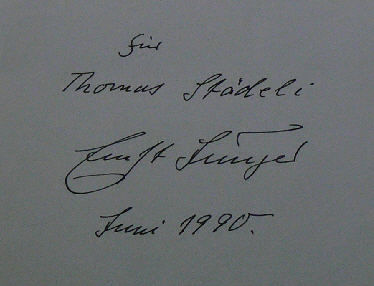 für
Thomas Städeli
Ernst Jünger
Juni 1990.